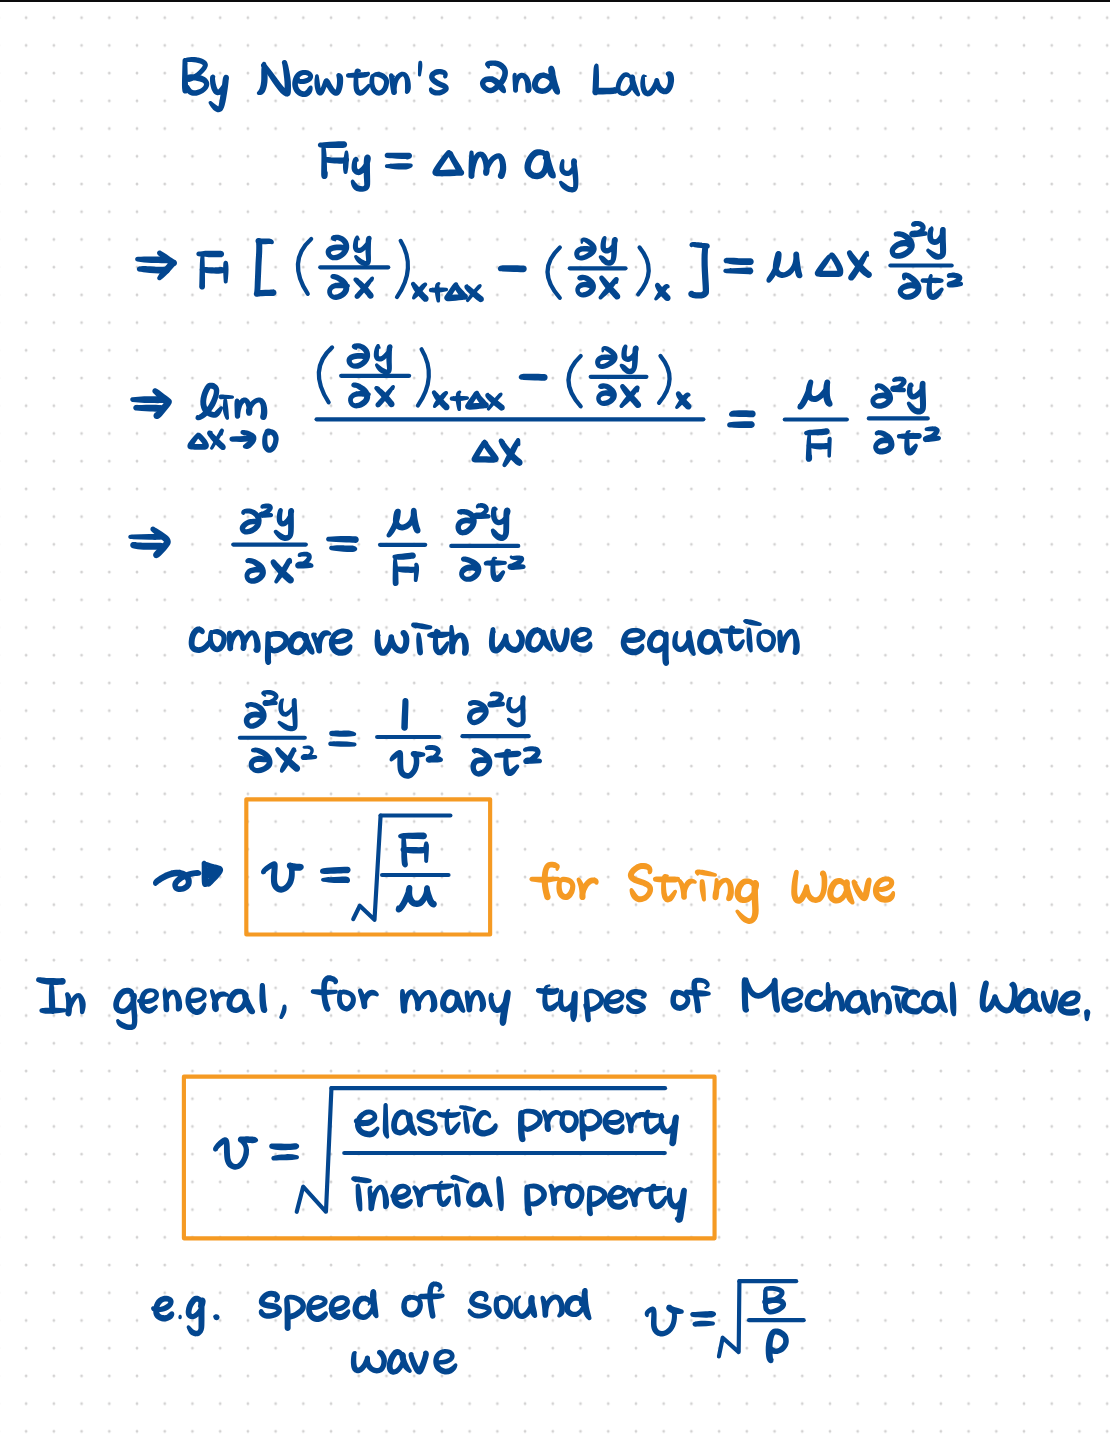 By Newton's 2nd Law
Fy = Δm ay
⇒ F [ (∂y/∂x)x+Δx − (∂y/∂x)x ] = μ Δx ∂²y/∂t²
⇒ lim Δx→0 ((∂y/∂x)x+Δx − (∂y/∂x)x)/Δx = μ/F ∂²y/∂t²
⇒ ∂²y/∂x² = μ/F ∂²y/∂t²
compare with wave equation
∂²y/∂x² = 1/v² ∂²y/∂t²
v = √(F/μ) for String Wave
In general, for many types of Mechanical Wave,
v = √(elastic property/inertial property)
e.g. speed of sound v = √(B/ρ)
wave